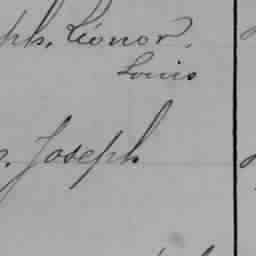 ph. Léonor.
Louis
Joseph